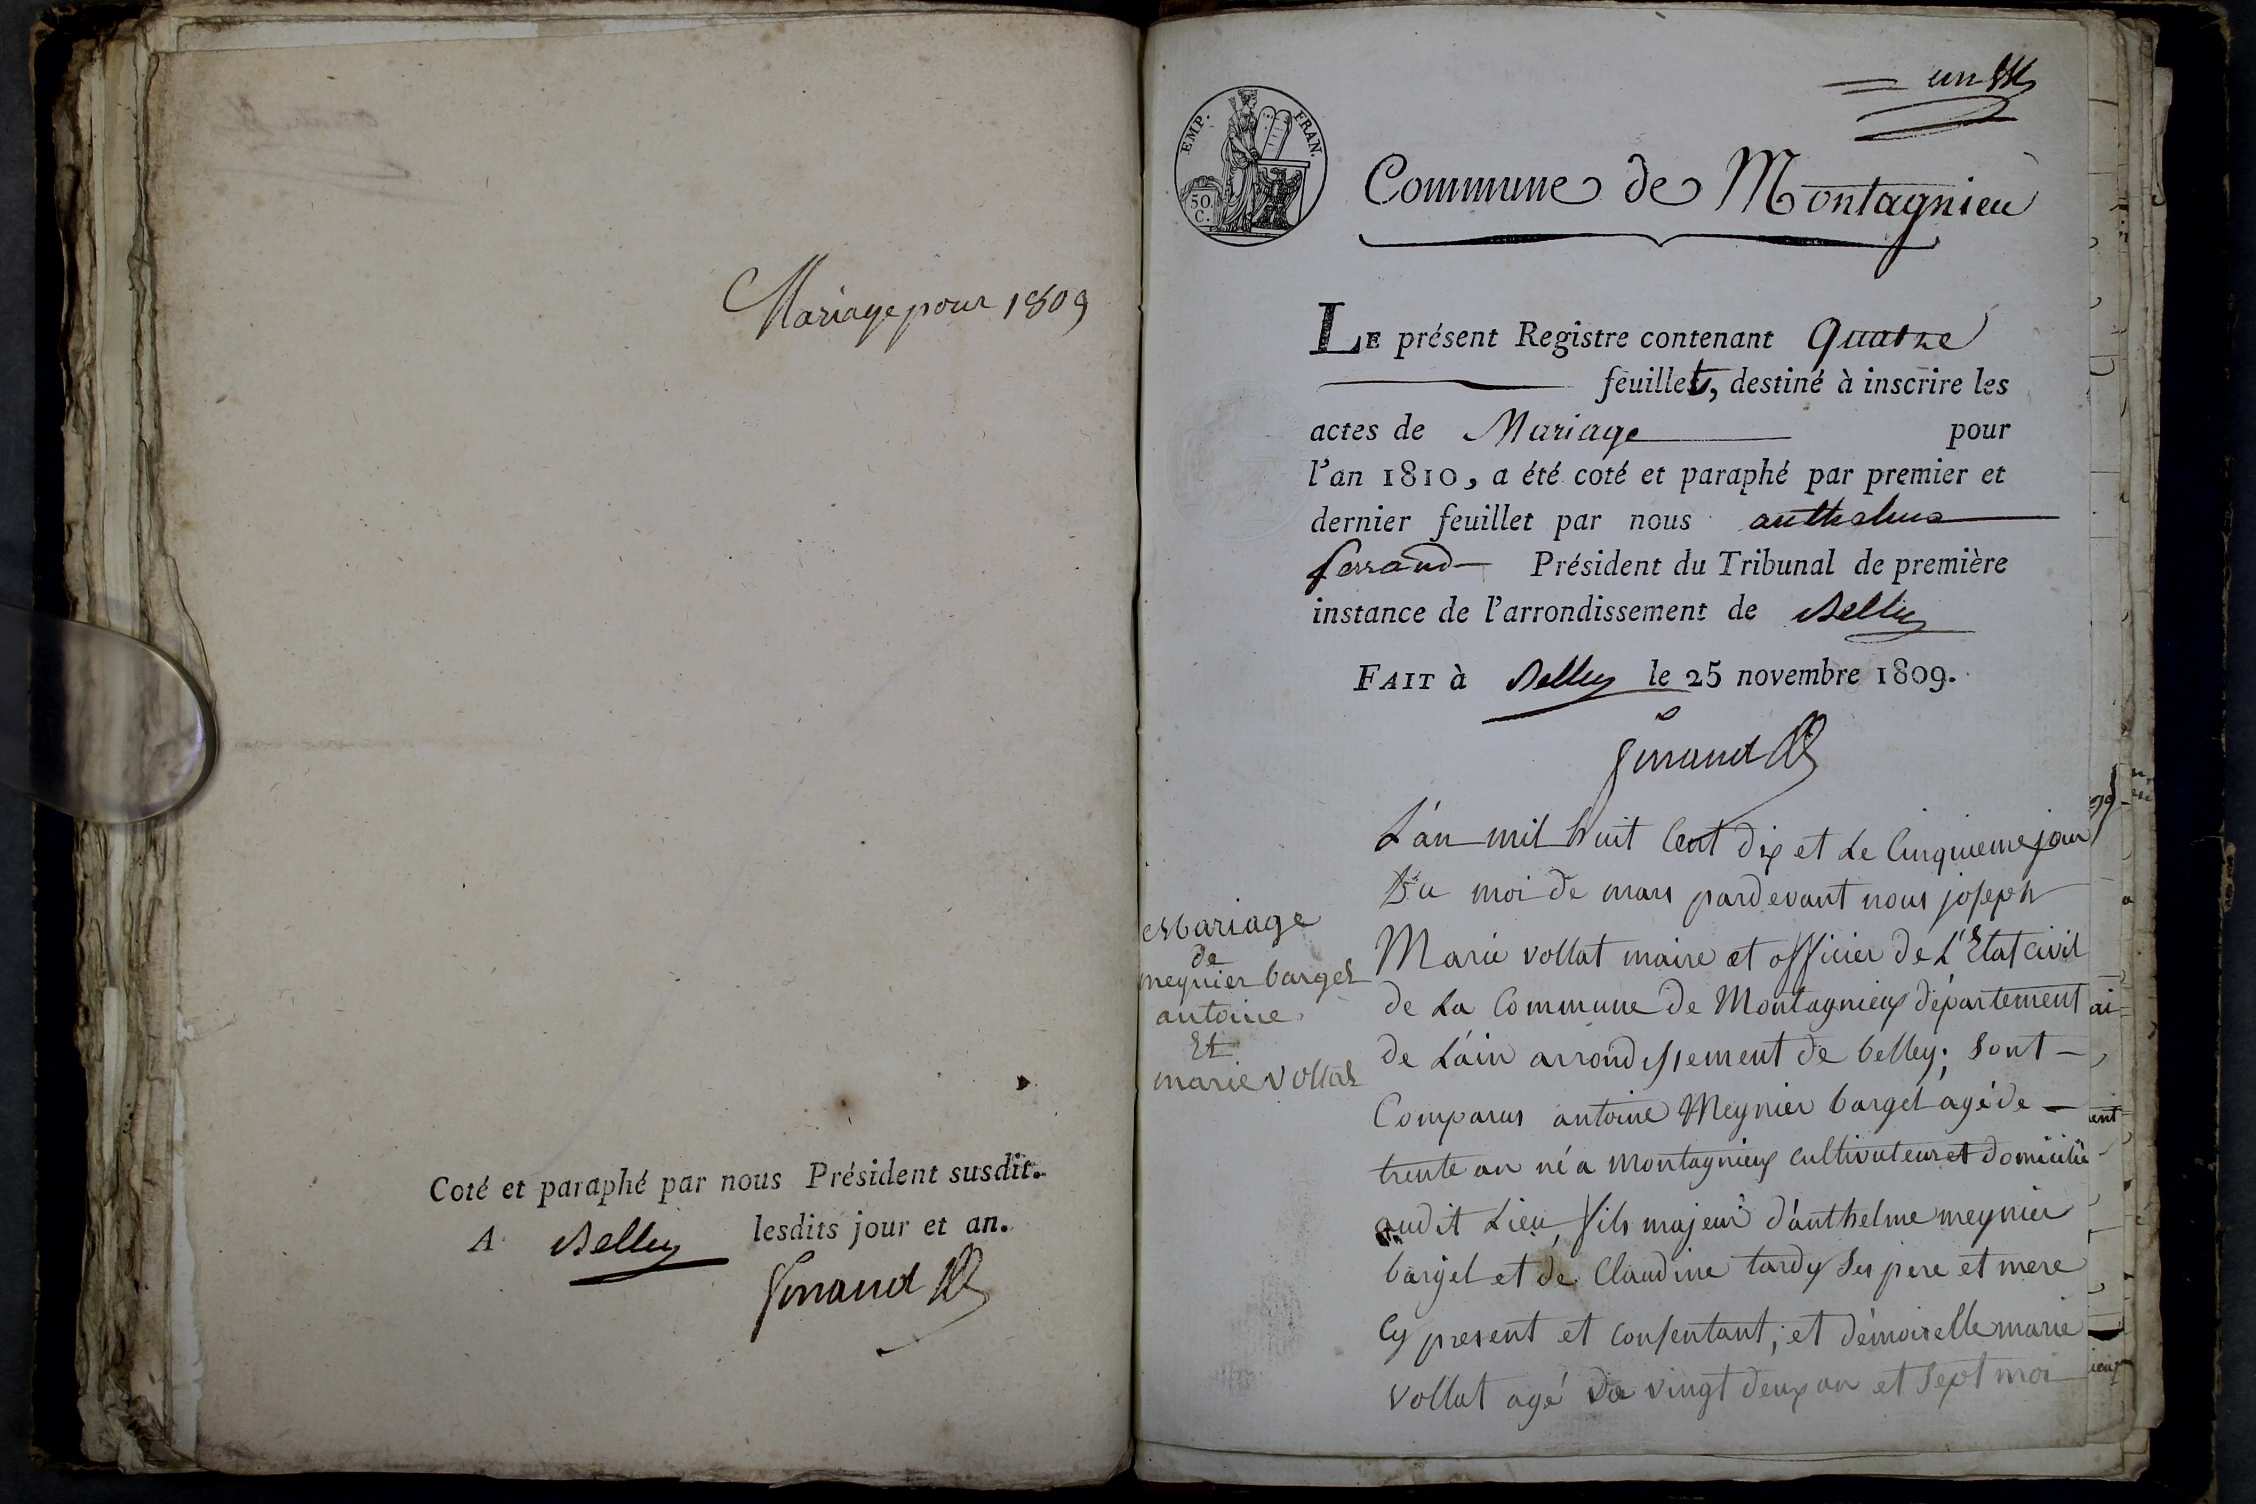 Mariage pour 1809
Coté et paraphé par nous Président susdit.
A Belley lesdits jour et an.
Ferrand
un
EMP. FRAN.
50 C.
Commune de Montagnieu
LE présent Registre contenant Quatre
feuillets, destiné à inscrire les
actes de Mariage pour
l'an 1810, a été coté et paraphé par premier et
dernier feuillet par nous anthelme
ferrand Président du Tribunal de première
instance de l'arrondissement de Belley
FAIT à Belley le 25 novembre 1809.
Ferrand
Mariage
de
meynier barget
antoine
Et
marie vollat
L'an mil huit Cent dix et Le Cinquieme jour
Du moi de mars pardevant nous joseph
Marie vollat maire et officier de L'Etat Civil
de La Commune de Montagnieux département
de L'ain arrondissement de belley; Sont
Comparus antoine Meynier barget agé de
trente an né a montagnieux cultivateur et domicilié
audit Lieu, fils majeur d'anthelme meynier
barget et de Claudine tardy Ses pere et mere
Cy present et Consentant; et démoiselle marie
Vollat agé de vingt deux an et Sept moi